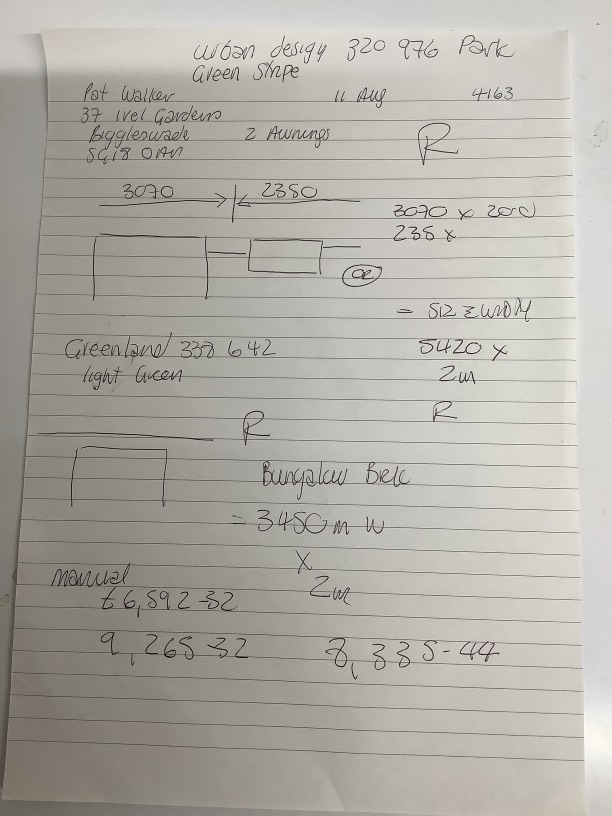 urban design 320 976 Park
Green Stripe
Pat Walker 11 Aug 4163
37 Ivel Gardens
Biggleswade 2 Awnings R
SG18 0AN
3070 2350
3070 x 2000
235 x
OR
= SIZE WDM
Greenland 338 642 5420 x
light Green 2m
R
R
Bungalow Back
= 3450m W
x
manual 2m
£6,592-32
9,265-32 8,335-44